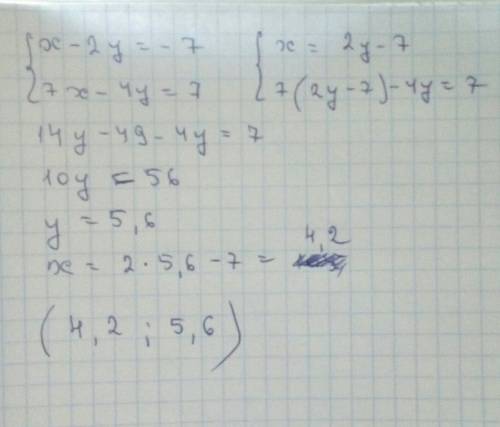 x - 2y = - 7     x = 2y - 7
7x - 4y = 7     7(2y - 7) - 4y = 7
14y - 49 - 4y = 7
10y = 56
y = 5,6
x = 2 · 5,6 - 7 = 4,2
(4,2 ; 5,6)